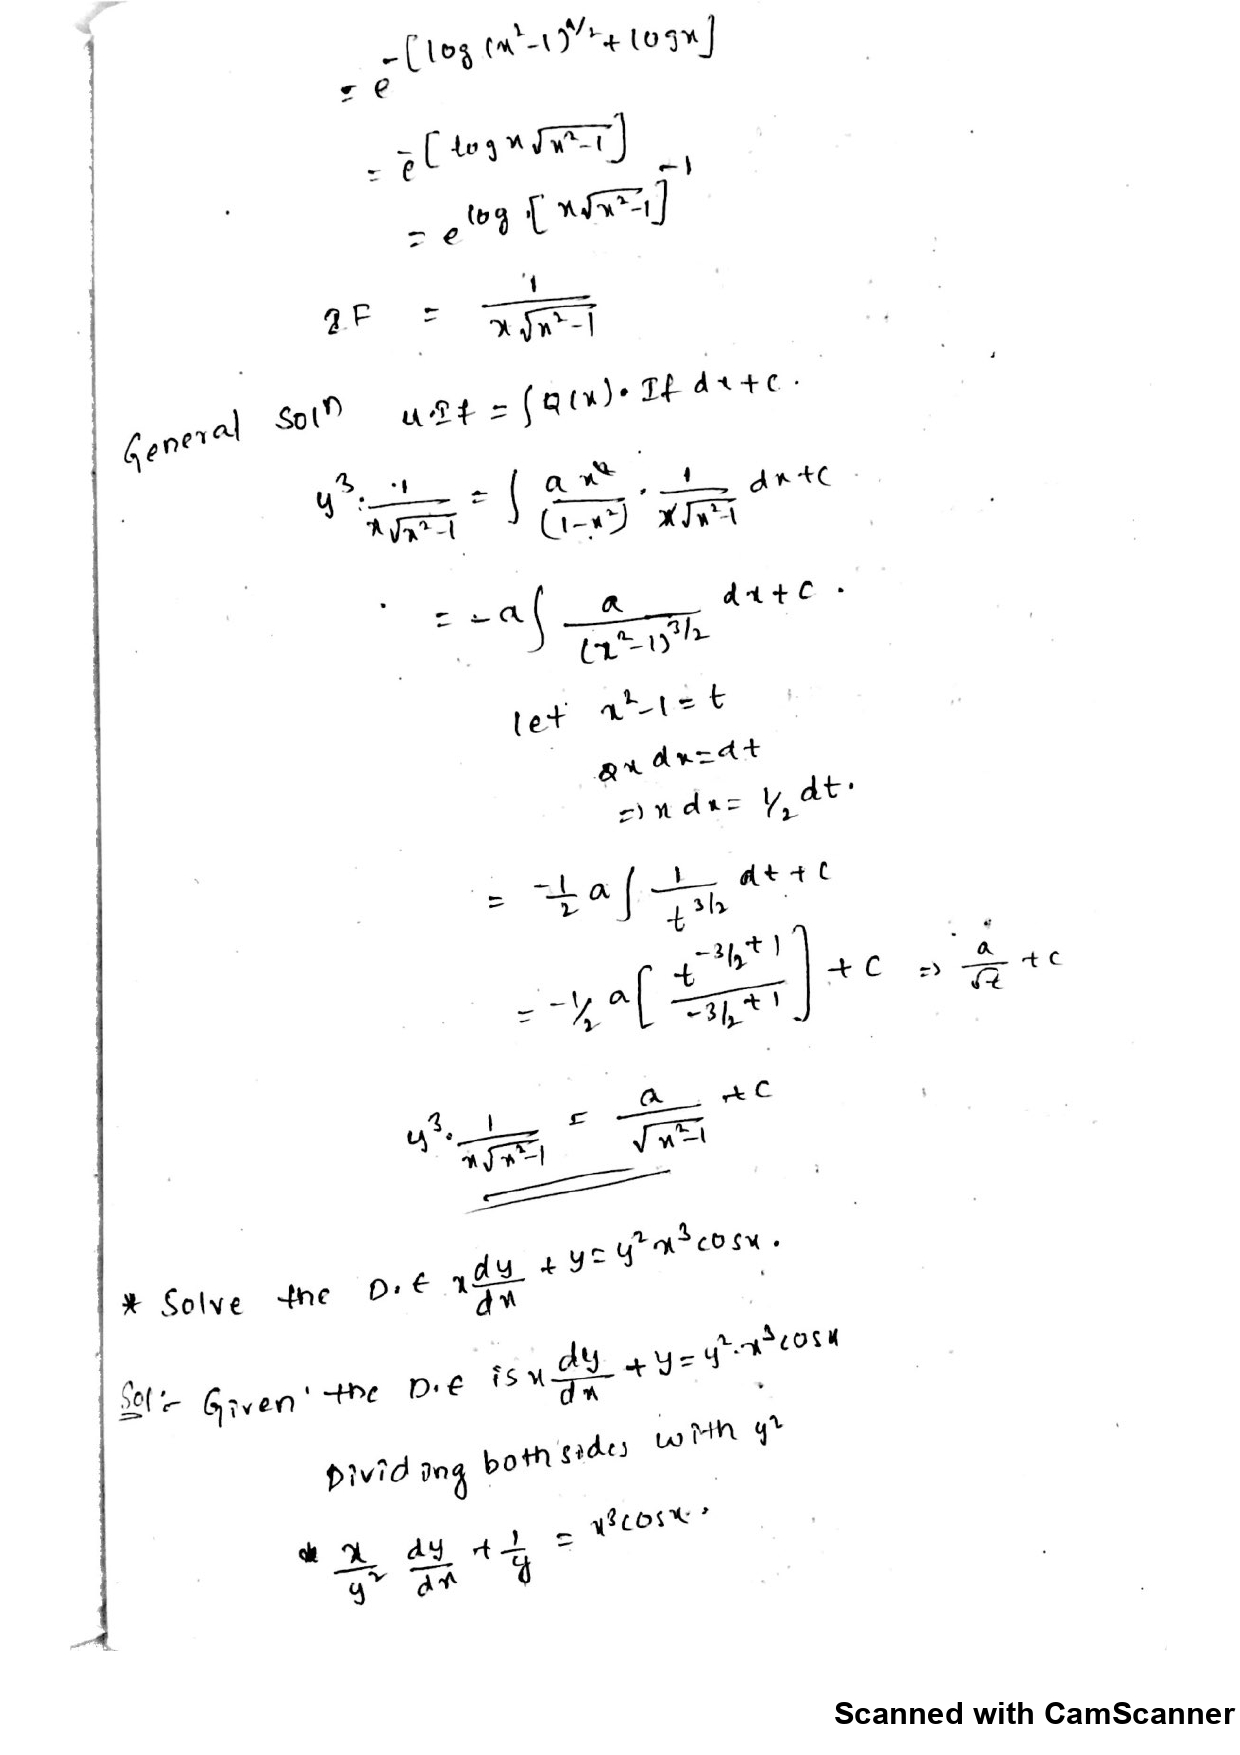 = e^-[log (x²-1)^1/2 + log x]
= e^-[log x √x²-1]
= e^log [x√x²-1]^-1
I.F = 1/(x√x²-1)
General Solⁿ u.If = ∫Q(x). If dx+c.
y³. 1/(x√x²-1) = ∫ a x²/(1-x²) . 1/(x√x²-1) dx+c
= -a∫ a/(x²-1)^3/2 dx+c.
let x²-1=t
2x dx=dt
=> x dx= 1/2 dt.
= -1/2 a∫ 1/t^3/2 dt + c
= -1/2 a[ t^(-3/2+1) / (-3/2+1) ] + c => a/√t + c
y³. 1/(x√x²-1) = a/√x²-1 + c
* Solve the D.E x dy/dx + y= y²x³cosx.
Sol:- Given the D.E is x dy/dx + y= y².x³cosx
Dividing both sides with y²
x/y² dy/dx + 1/y = x³cosx.
Scanned with CamScanner